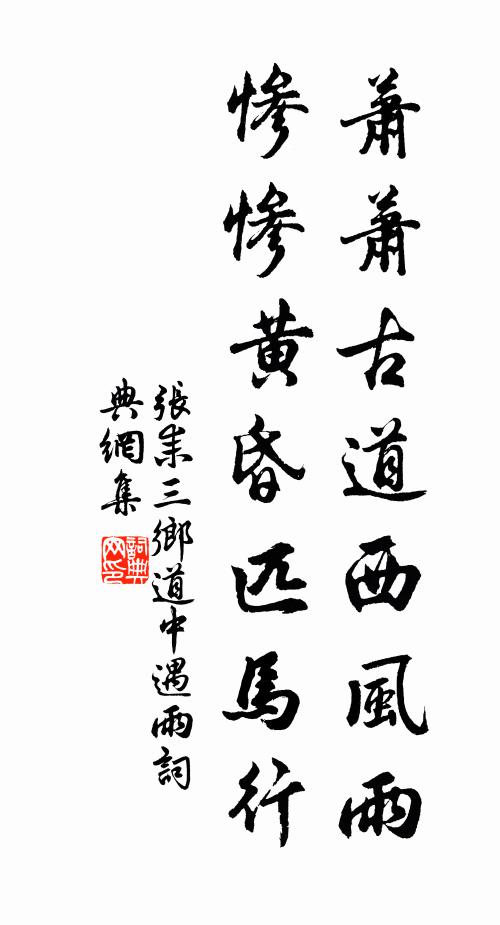 蕭蕭古道西風雨
慘慘黄昏匹馬行
張耒三鄉道中遇雨詞
典網集
詞典
网印